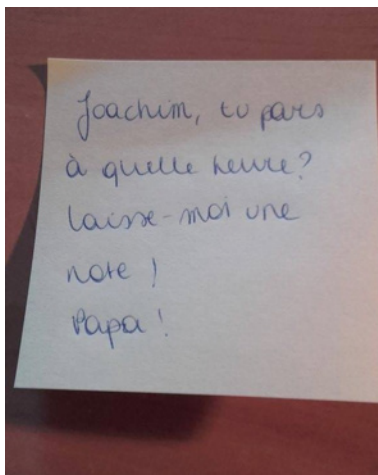 Joachim, tu pars
à quelle heure?
laisse-moi une
note !
Papa !